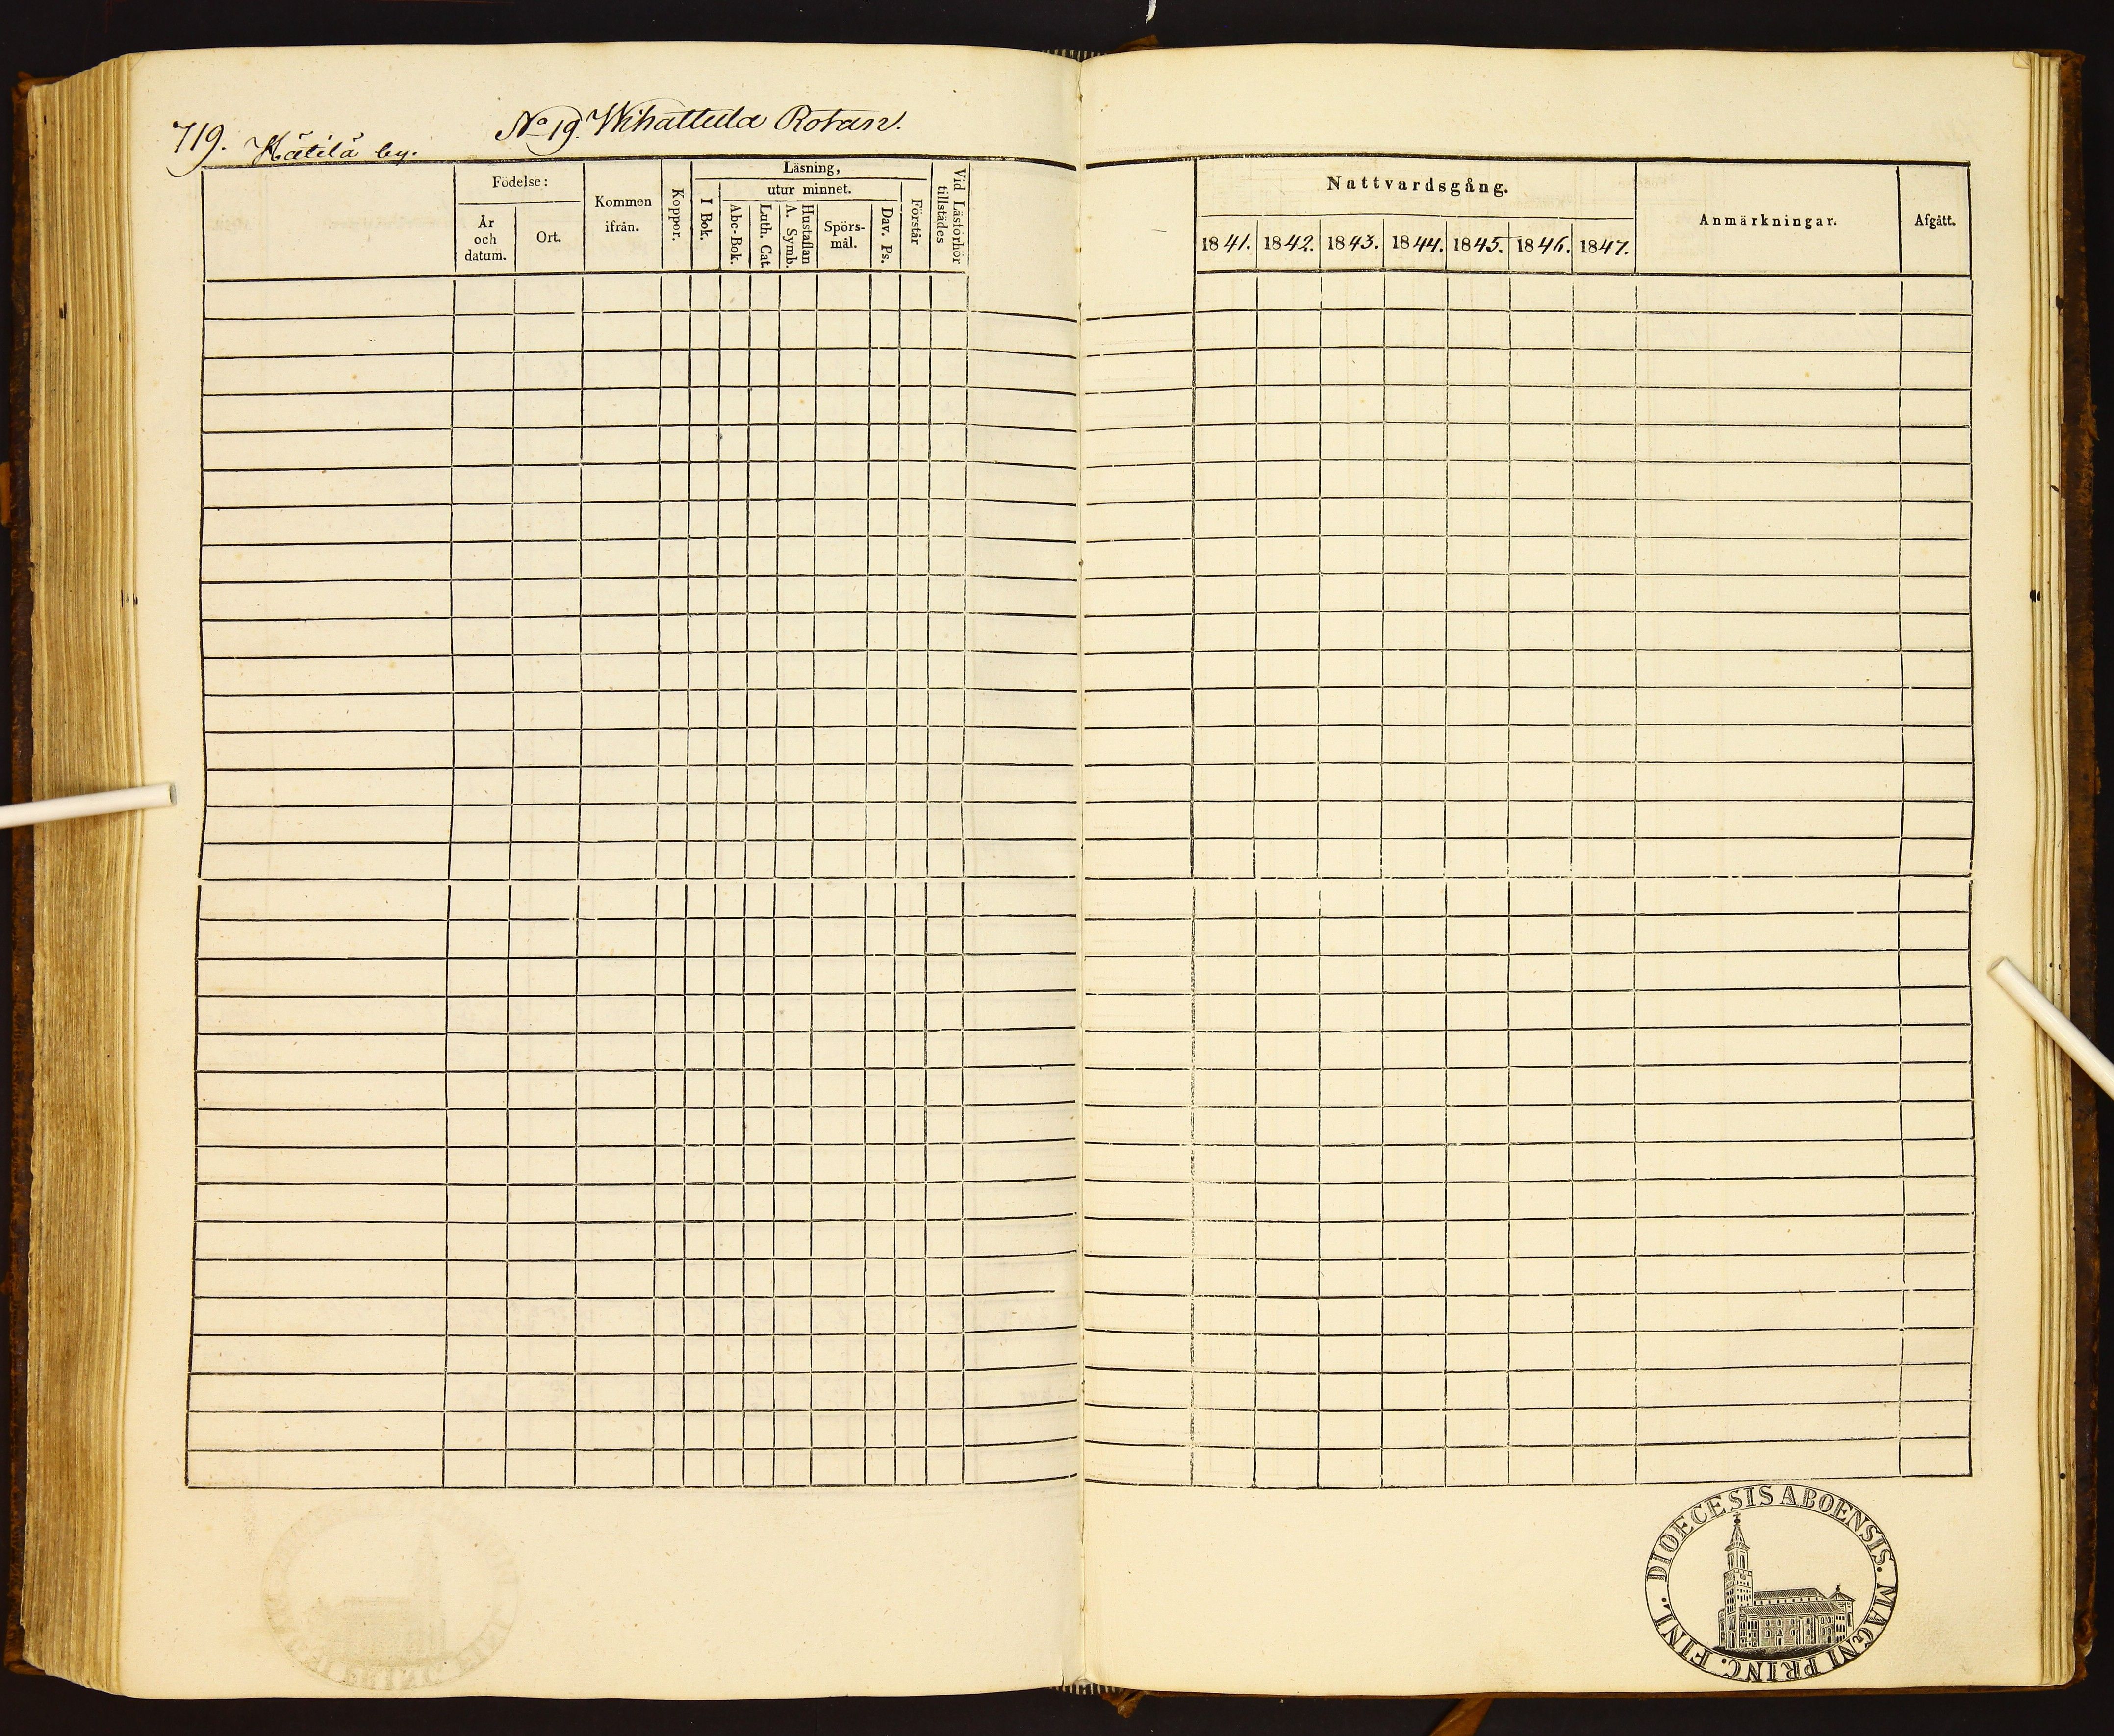 719. Kätilä by.
No 19. Wihattula Rotan.
Födelse:
År och datum.
Ort.
Kommen ifrån.
Koppor.
Läsning,
I Bok.
utur minnet.
Abc-Bok.
Luth. Cat
Hustaflan A. Symb.
Spörs-mål.
Dav. Ps.
Förstår
Vid Läsförhör tillstädes
Nattvardsgång.
1841. 1842. 1843. 1844. 1845. 1846. 1847.
Anmärkningar.
Afgått.
DIOECESIS ABOENSIS. MAGNI PRINC. FINL.